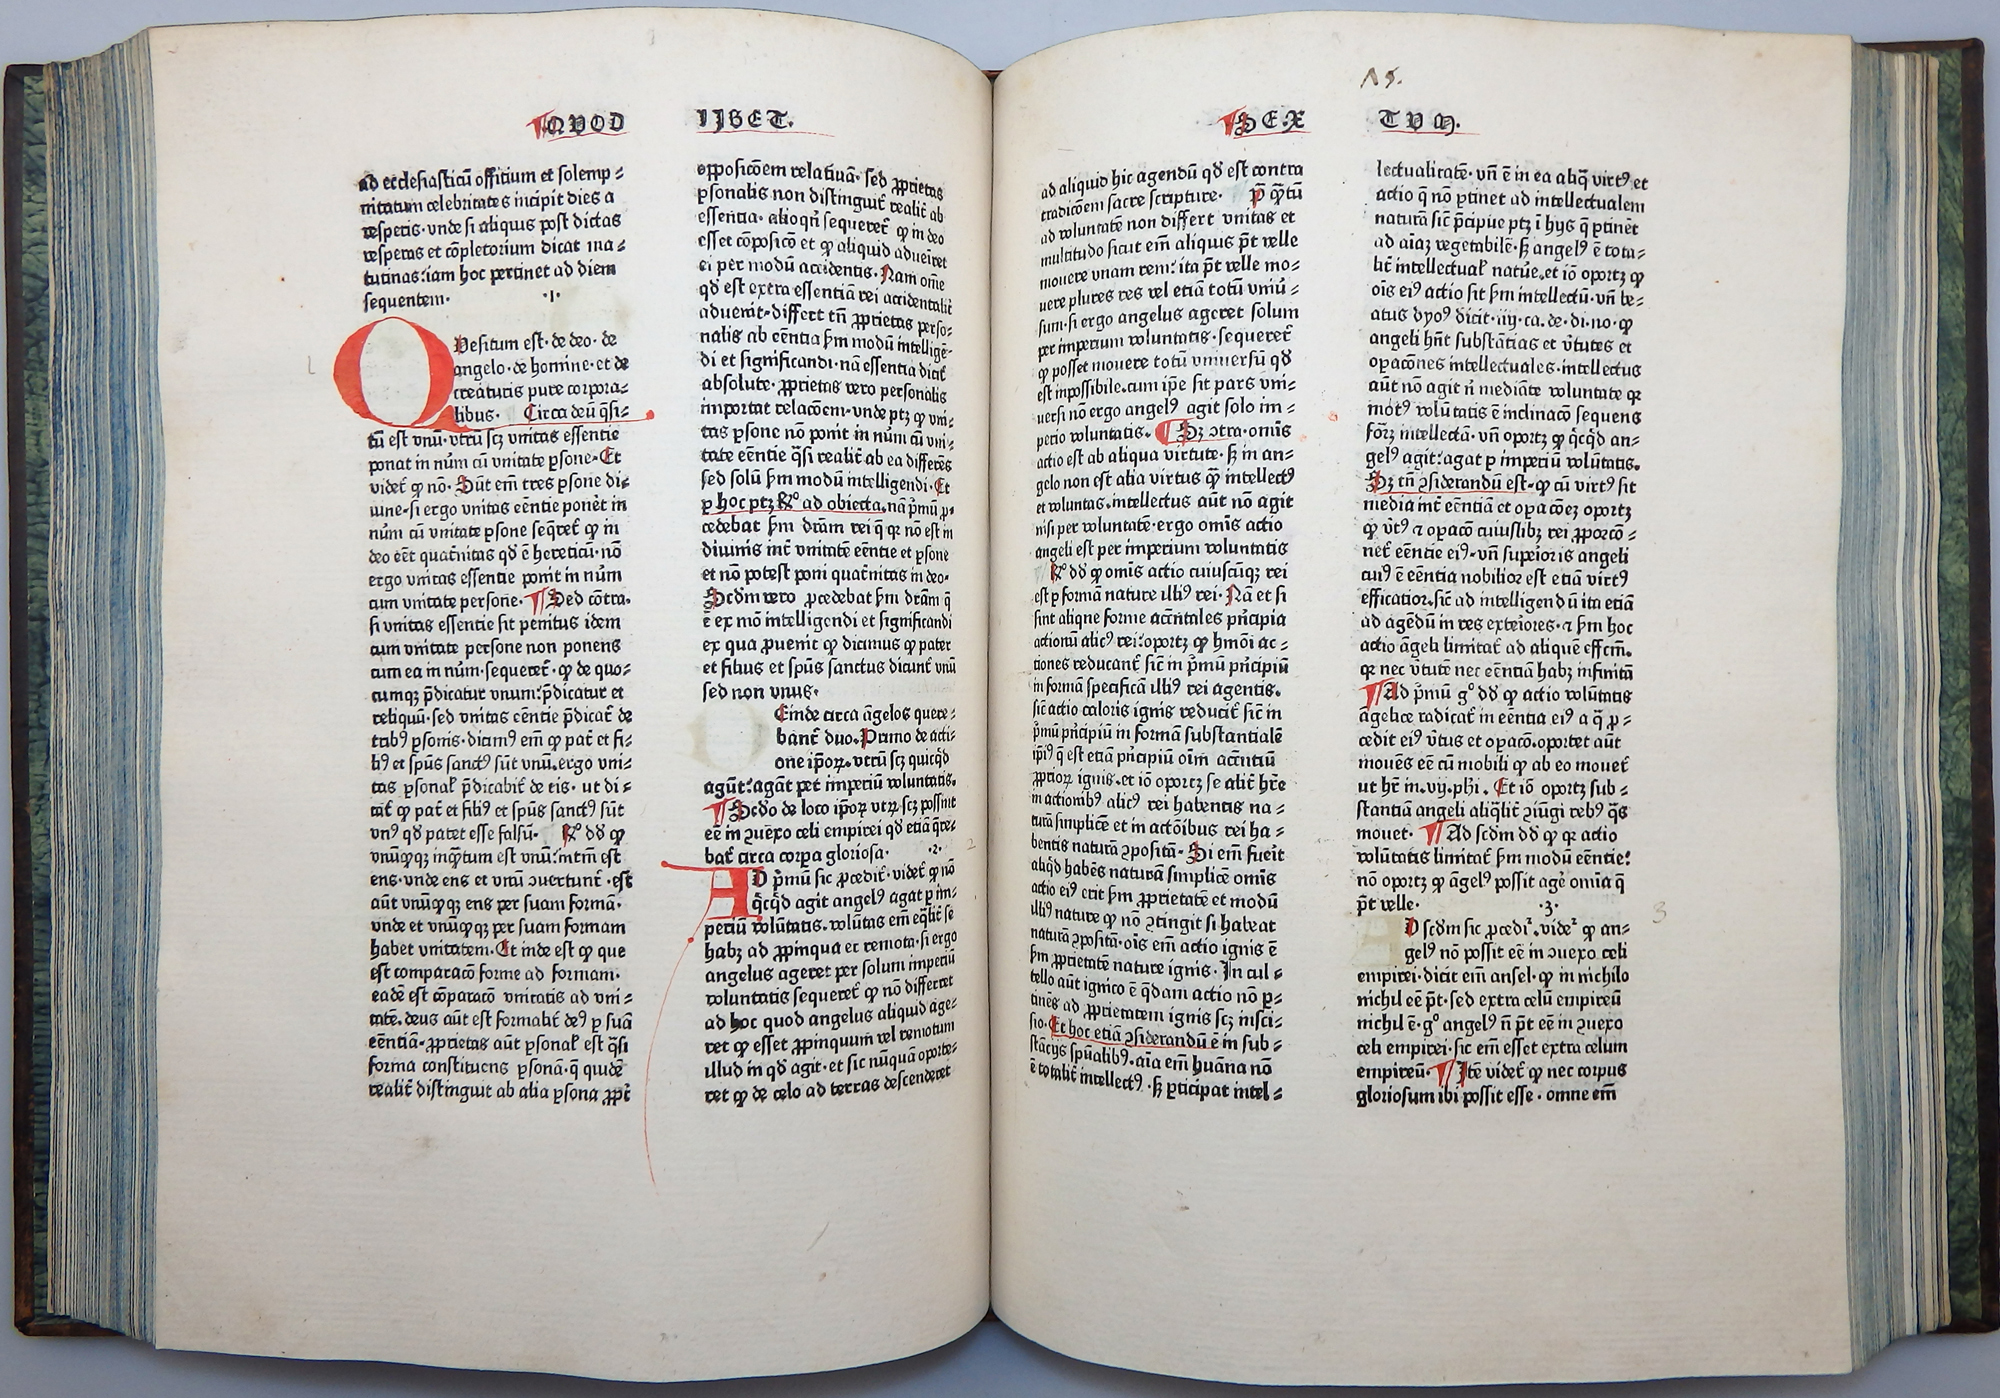 QVOD
LIBET.
ad ecclesiasticū offitium et solemp⸗
nitatum celebritates incipit dies a
vesperis· vnde si aliquis post dictas
vesperas et cōpletorium dicat ma⸗
tutinas: iam hoc pertinet ad diem
sequentem· ·1·
QVesitum est· de deo· de
angelo· de homine· et de
creaturis pure corpora⸗
libus· Circa deū q̄si⸗
tū est vnū· vtrū scꝫ vnitas essentie
ponat in nūm cū vnitate ꝑsone· Et
videt̄ ꝙ nō· Sūt em̄ tres ꝑsone di⸗
uine· si ergo vnitas eēntie ponēt in
nūm cū vnitate ꝑsone seq̄ret̄ ꝙ in
deo eēt quat̄nitas qd̄ ē hereticū· nō
ergo vnitas essentie ponit in nūm
cum vnitate persone· Sed cōtra·
si vnitas essentie sit penitus idem
cum vnitate persone non ponens
cum ea in nūm· sequeret̄· ꝙ de quo⸗
cumqꝫ p̄dicatur vnum: p̄dicatur et
reliquū· sed vnitas eēntie p̄dicat̄ de
tribꝰ ꝑsonis· dicimꝰ em̄ ꝙ pat̄ et fi⸗
liꝰ et spūs sanctꝰ sūt vnū. ergo vni⸗
tas ꝑsonał p̄dicabit̄ de eis· ut di⸗
cat̄ ꝙ pat̄ et filiꝰ et spūs sanctꝰ sūt
vnꝰ qd̄ patet esse falsū· ℞º dd̄ ꝙ
vnūqꝫqꝫ inq̄ntum est vnū: intm̄ est
ens· vnde ens et vnū ↄuertunt̄· est
aūt vnūqꝫqꝫ ens per suam formā·
vnde et vnūqꝫqꝫ per suam formam
habet vnitatem· Et inde est ꝙ que
est comparacō forme ad formam·
eadē est cōparacō vnitatis ad vni⸗
tatē. deus aūt est formalit̄ deꝰ ꝑ suā
eēntiā· ꝓprietas aūt ꝑsonał est q̄si
forma constituens ꝑsonā· q̄ quidē
realit̄ distinguit ab alia ꝑsona ꝓpt̄
opposicōem relatiuā· sed ꝓprietas
ꝑsonalis non distinguit̄ realit̄ ab
essentia· alioqn̄ sequeret̄ ꝙ in deo
esset cōposicō et ꝙ aliquid adueiret
ei per modū accidentis· Nam om̄e
qd̄ est extra essentiā rei accidentalit̄
aduenit· differt tn̄ ꝓprietas perso⸗
nalis ab eēntia ẜm modū intelligē⸗
di et significandi· nā essentia dicit̄
absolute· ꝓprietas vero personalis
importat relacōem· vnde ptꝫ ꝙ vni⸗
tas ꝑsone nō ponit in nūm cū vni⸗
tate eēntie q̄si realit̄ ab ea differēs
sed solū ẜm modū intelligendi· Et
ꝑ hoc ptꝫ ℞º ad obiecta. nā p̄mū ꝓ⸗
cedebat ẜm dr̄am rei q̄ qꝛ nō est in
diuinis int̄ vnitatē eēntie et ꝑsone
et nō potest poni quat̄nitas in deo·
Scdm̄ vero ꝓcedebat ẜm dr̄am q̄
ē ex mō intelligendi et significandi
ex qua ꝓuenit ꝙ dicimus ꝙ pater
et filius et spūs sanctus dicunt̄ vnū
sed non vnus·
Einde circa āgelos quere⸗
bant̄ duo. Primo de acti⸗
one ipōꝝ. vtrū scꝫ quicqd̄
agūt: agāt per imperiū voluntatis.
Scdo de loco ipōꝝ vtꝝ scꝫ possint
eē in ↄuexo celi empirei qd̄ etiā q̄re⸗
bat̄ circa corpa gloriosa· ·2·
AD p̄mū sic ꝓcedit̄· videt̄ ꝙ nō
q̄cqd̄ agit angelꝰ agat ꝑ im⸗
periū volūtatis. volūtas em̄ eq̄lit̄ se
habꝫ ad ꝓpinqua et remota· si ergo
angelus ageret per solum imperiū
voluntatis sequeret̄ ꝙ nō differret
ad hoc quod angelus aliquid age⸗
ret ꝙ esset ꝓpinquum vel remotum
illud in qd̄ agit· et sic nūquā oporte⸗
ret ꝙ de celo ad terras descenderet
15.
SEX
TVM.
ad aliquid hic agendū qd̄ est contra
tradicōem sacre scripture· P̄ q̄tū
ad voluntatē non differt vnitas et
multitudo sicut em̄ aliquis p̄t velle
mouere vnam rem: ita p̄t velle mo⸗
uere plures res vel etiā totū vniū⸗
sum· si ergo angelus ageret solum
per imperium voluntatis· sequeret̄
ꝙ posset mouere totū vniuersū qd̄
est inpossibile. cum ip̄e sit pars vni⸗
uersi nō ergo angelꝰ agit solo im⸗
perio voluntatis. Sꝫ ↄtra· omīs
actio est ab aliqua virtute· sꝫ in an⸗
gelo non est alia virtus q̄ꝫ intellectꝰ
et voluntas. intellectus aūt nō agit
nisi per voluntatē· ergo omīs actio
angeli est per imperium voluntatis
℞º dd̄ ꝙ omīs actio cuiuscūqꝫ rei
est ꝑ formā nature illiꝰ rei· Nā et si
sint aliqne forme acc̄ntales pn̄cipia
actionū alicꝰ rei: oportꝫ ꝙ hmōi ac⸗
tiones reducant̄ sic̄ in p̄mū pn̄cipiū
in formā specificā illiꝰ rei agentis.
sic̄ actio caloris ignis reducit̄ sic̄ in
p̄mū pn̄cipiū in formā substantialē
ip̄iꝰ q̄ est etiā pn̄cipiū oīm acc̄ntiū
ꝓprioꝝ ignis· et iō oportꝫ se alit̄ hr̄e
in actionibꝰ alicꝰ rei habentis na⸗
turā simplicē et in actōibus rei ha⸗
bentis naturā ↄpositā· Si em̄ fueīt
aliqd̄ habēs naturā simplicē omīs
actio eiꝰ erit ẜm ꝓprietatē et modū
illiꝰ nature ꝙ nō ↄtingit si habeat
naturā ↄpositā· oīs em̄ actio ignis ē
ẜm ꝓprietatē nature ignis· In cul⸗
tello aūt ignito ē q̄dam actio nō ꝑ⸗
tinēs ad ꝓprietatem ignis scꝫ incisi⸗
sio· Et hoc etiā ↄsiderandū ē in sub⸗
stācijs spūalibꝰ. aīa em̄ huāna nō
ē totalit̄ intellectꝰ· sꝫ ꝑticipat intel⸗
lectualitatē· vn̄ ē in ea aliq̄ virtꝰ et
actio q̄ nō ꝑtinet ad intellectualem
naturā sic̄ p̄cipue ptꝫ ī hijs q̄ ꝑtinēt
ad aīaꝫ vegetabilē· sꝫ angelꝰ ē tota⸗
lit̄ intellectuał natūe. et iō oportꝫ ꝙ
oīs eiꝰ actio sit ẜm intellectū· vn̄ be⸗
atus dyoꝰ dicit· iiij· ca. de· di· no· ꝙ
angeli hn̄t substātias et v̄tutes et
opacōnes intellectuales. intellectus
aūt nō agit n̄ mediāte voluntate qꝛ
motꝰ volūtatis ē inclinacō sequens
formꝫ intellectā· vn̄ oportꝫ ꝙ q̄cqd̄ an⸗
gelꝰ agit: agat ꝑ imperiū volūtatis.
Sꝫ tn̄ ↄsiderandū est· ꝙ cū virtꝰ sit
media int̄ eēntiā et opacōeꝫ oportꝫ
ꝙ v̄tꝰ ⁊ opacō cuiuslibꝫ rei ꝓporcō⸗
net̄ eēntie eiꝰ· vn̄ supioris angeli
cuiꝰ ē eēntia nobilior est etiā virtꝰ
efficatior. sic̄ ad intelligendū ita etiā
ad agēdū in res exteriores· ⁊ ẜm hoc
actio āgeli limitat̄ ad aliquē effcm̄.
ꝙ nec v̄tutē nec eēntiā habꝫ infinitā
Ad p̄mū gº dd̄ ꝙ actio volūtatis
āgelice radicat̄ in eēntia eiꝰ a q̄ ꝓ⸗
cedit eiꝰ v̄tus et opacō. oportet aūt
mouēs eē cū mobili ꝙ ab eo mouet̄
ut hr̄ in. vij. phi. Et iō oportꝫ sub⸗
stantiā angeli aliq̄lit̄ ↄiūgi rebꝰ q̄s
mouet· Ad scdm̄ dd̄ ꝙ qꝛ actio
volūtatis limitat̄ ẜm modū eēntie:
nō oportꝫ ꝙ āgelꝰ possit agē omīa q̄
p̄t velle· ·3·
D scdm̄ sic ꝓcedit̄. videt̄ ꝙ an⸗
gelꝰ nō possit eē in ↄuexo celi
empirei· dicit em̄ ansel· ꝙ in nichilo
nichil eē p̄t· sed extra celū empireū
nichil ē· gº angelꝰ n̄ p̄t eē in ↄuexo
celi empirei· sic em̄ esset extra celum
empireū· Itē videt̄ ꝙ nec corpus
gloriosum ibi possit esse· omne em̄
3